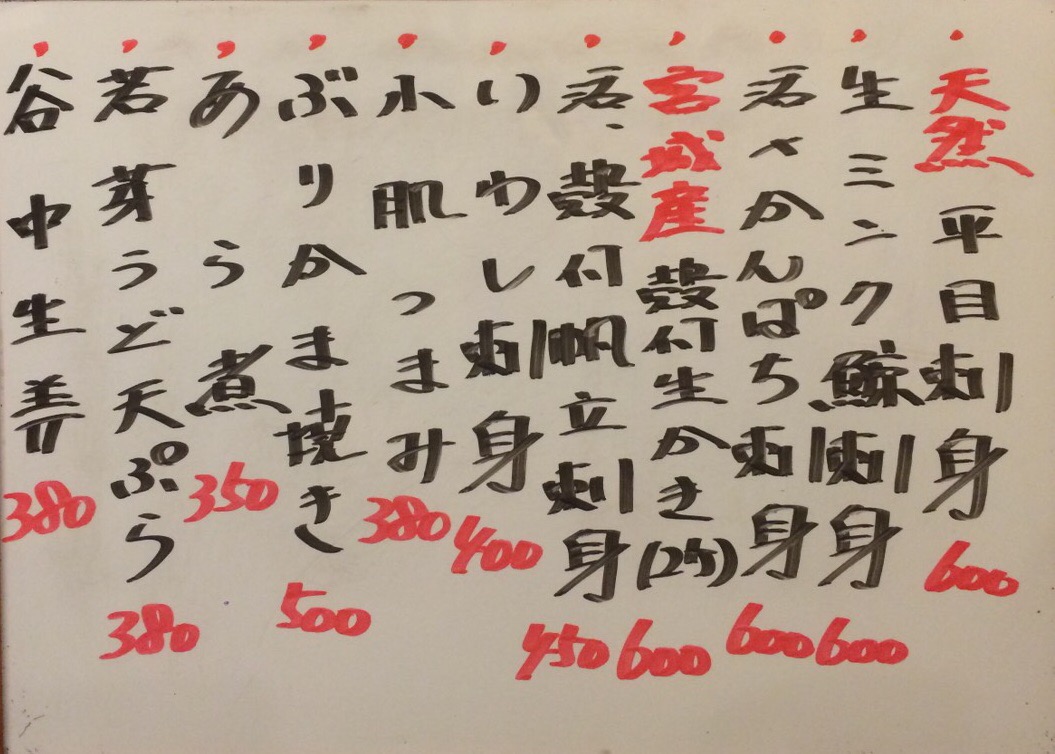 天然平目刺身 600
生ミンク鯨刺身 600
活〆かんぱち刺身 600
宮城産殻付生かき(2ケ) 600
活、殻付帆立刺身 450
いわし刺身 400
小肌つまみ 380
ぶりかま焼き 500
あら煮 350
若芽うど天ぷら 380
谷中生姜 380